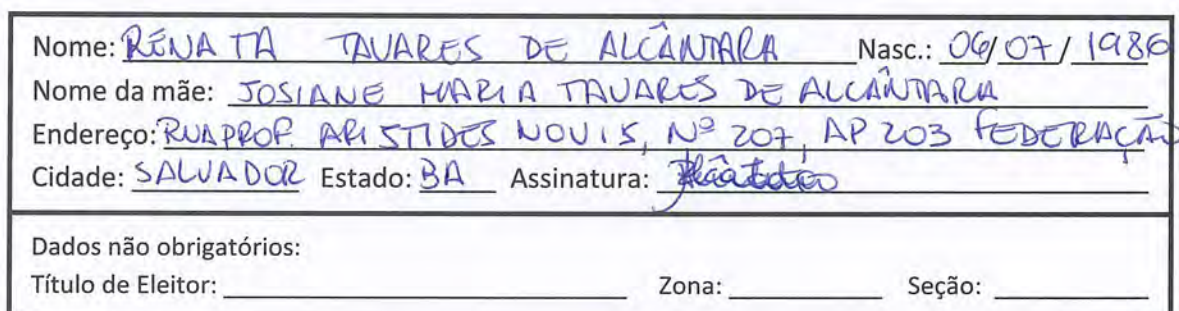 Nome: RENATA TAVARES DE ALCÂNTARA Nasc.: 06/07/1986
Nome da mãe: JOSIANE MARIA TAVARES DE ALCÂNTARA
Endereço: RUA PROF. ARISTIDES NOVIS, Nº 207, AP 203 FEDERAÇÃO
Cidade: SALVADOR Estado: BA Assinatura:
Dados não obrigatórios:
Título de Eleitor: Zona: Seção: